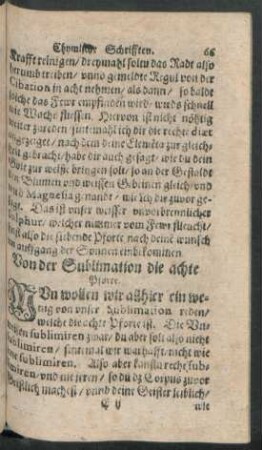 Chymische Schrifften. 66
Kraffe reinigen / dreymahl soltu das Radt also
herumb treiben / vnnd gemeldte Regul von der
Cibation in acht nehmen / als dann / so baldt
solche das Fewr empfinden wird / wirds schnell
wie Wachs fliessen. Hiervon ist nicht nöhtig
weiter zureden sintemahl ich dir die rechte diæt
angezeyget / nach dem deine Elementa zur gleich-
heit gebracht / habe dir auch gesagt / wie du dein
Golt zur weisse bringen solt / so an der Gestaldt
den Blumen vnd weissen Gebeinen gleich / vnd
wird Magnesia genandt / wie ich dir zuvor ge-
sagt. Das ist vnser weisser vnverbrennlicher
Sulphur / welcher nimmer vom Fewr fleucht /
ist also die siebende Pforte nach deine wunsch
im auffgang der Sonnen einbekommen
Von der Sublimation die achte
Pforte.
NUn wollen wir allhier ein we-
nig von vnser Sublimation reden /
welche die achte Pforte ist. Die Vn-
weisen sublimiren zwar / du abr solt also nicht
sublimiren / sintemal wir warhafft nicht wie
sie sublimiren. Also aber kanstu recht sub-
miren / vnd nie irren / so du dz Corpus zuvor
Geistlich machest / vnd deine Geister leiblich /
C ij wie